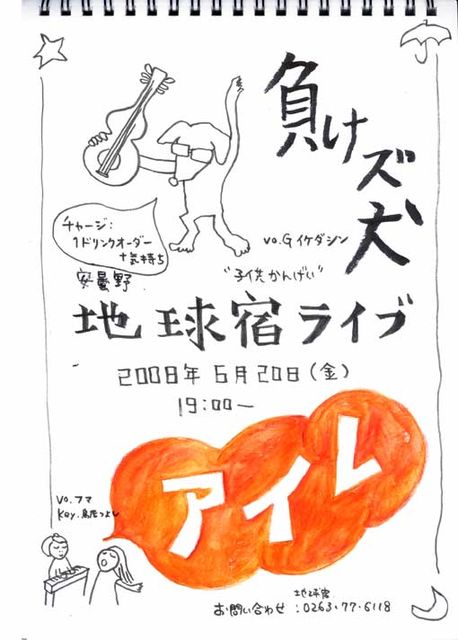 負けズ犬
チャージ:
1ドリンクオーダー
+気持ち
vo.G イケダシン
"子供かんげい"
安曇野
地球宿ライブ
2008年6月20日(金)
19:00ー
アイレ
vo.フマ
Key.
地球宿
お問い合わせ:0263-77-6118